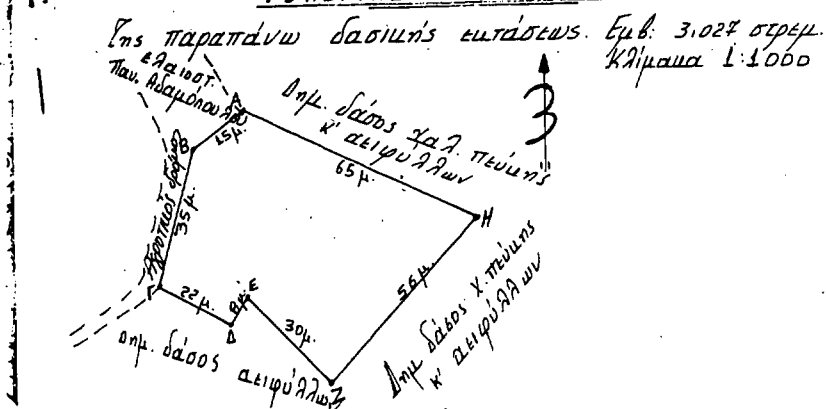 της παραπάνω δασικής εκτάσεως. Εμβ: 3.027 στρεμ.
Κλίμακα 1:1000
ελαιοστ.
Παν. Αδαμόπουλου
Α
Β
15μ.
Δημ. δάσος χαλ. πεύκης
κ' αειφύλλων
65μ.
Η
Αγροτικός δρόμος
35μ.
Γ
22μ.
Δ
8μ.
Ε
30μ.
Ζ
56μ.
Δημ. δάσος χ. πεύκης
κ' αειφύλλων
Δημ. δάσος αειφύλλων